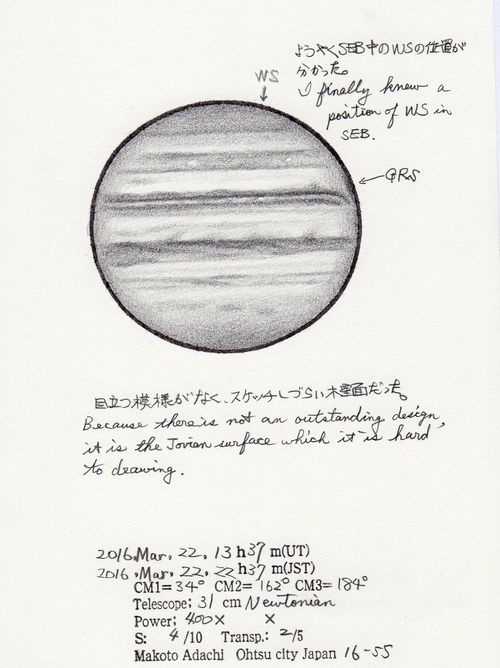 ようやくSEB中のWSの位置が
分かった。
I finally knew a
position of WS in
SEB.
WS
GRS
目立つ模様がなく、スケッチしづらい木星面だった。
Because there is not an outstanding design,
it is the Jovian surface which it is hard
to deawing.
2016, Mar, 22, 13 h 37 m(UT)
2016, Mar, 22, 22 h 37 m(JST)
CM1= 34° CM2= 162° CM3= 184°
Telescope; 31 cm Newtonian
Power; 400× ×
S: 4/10 Transp.: 2/5
Makoto Adachi Ohtsu city Japan 16-55